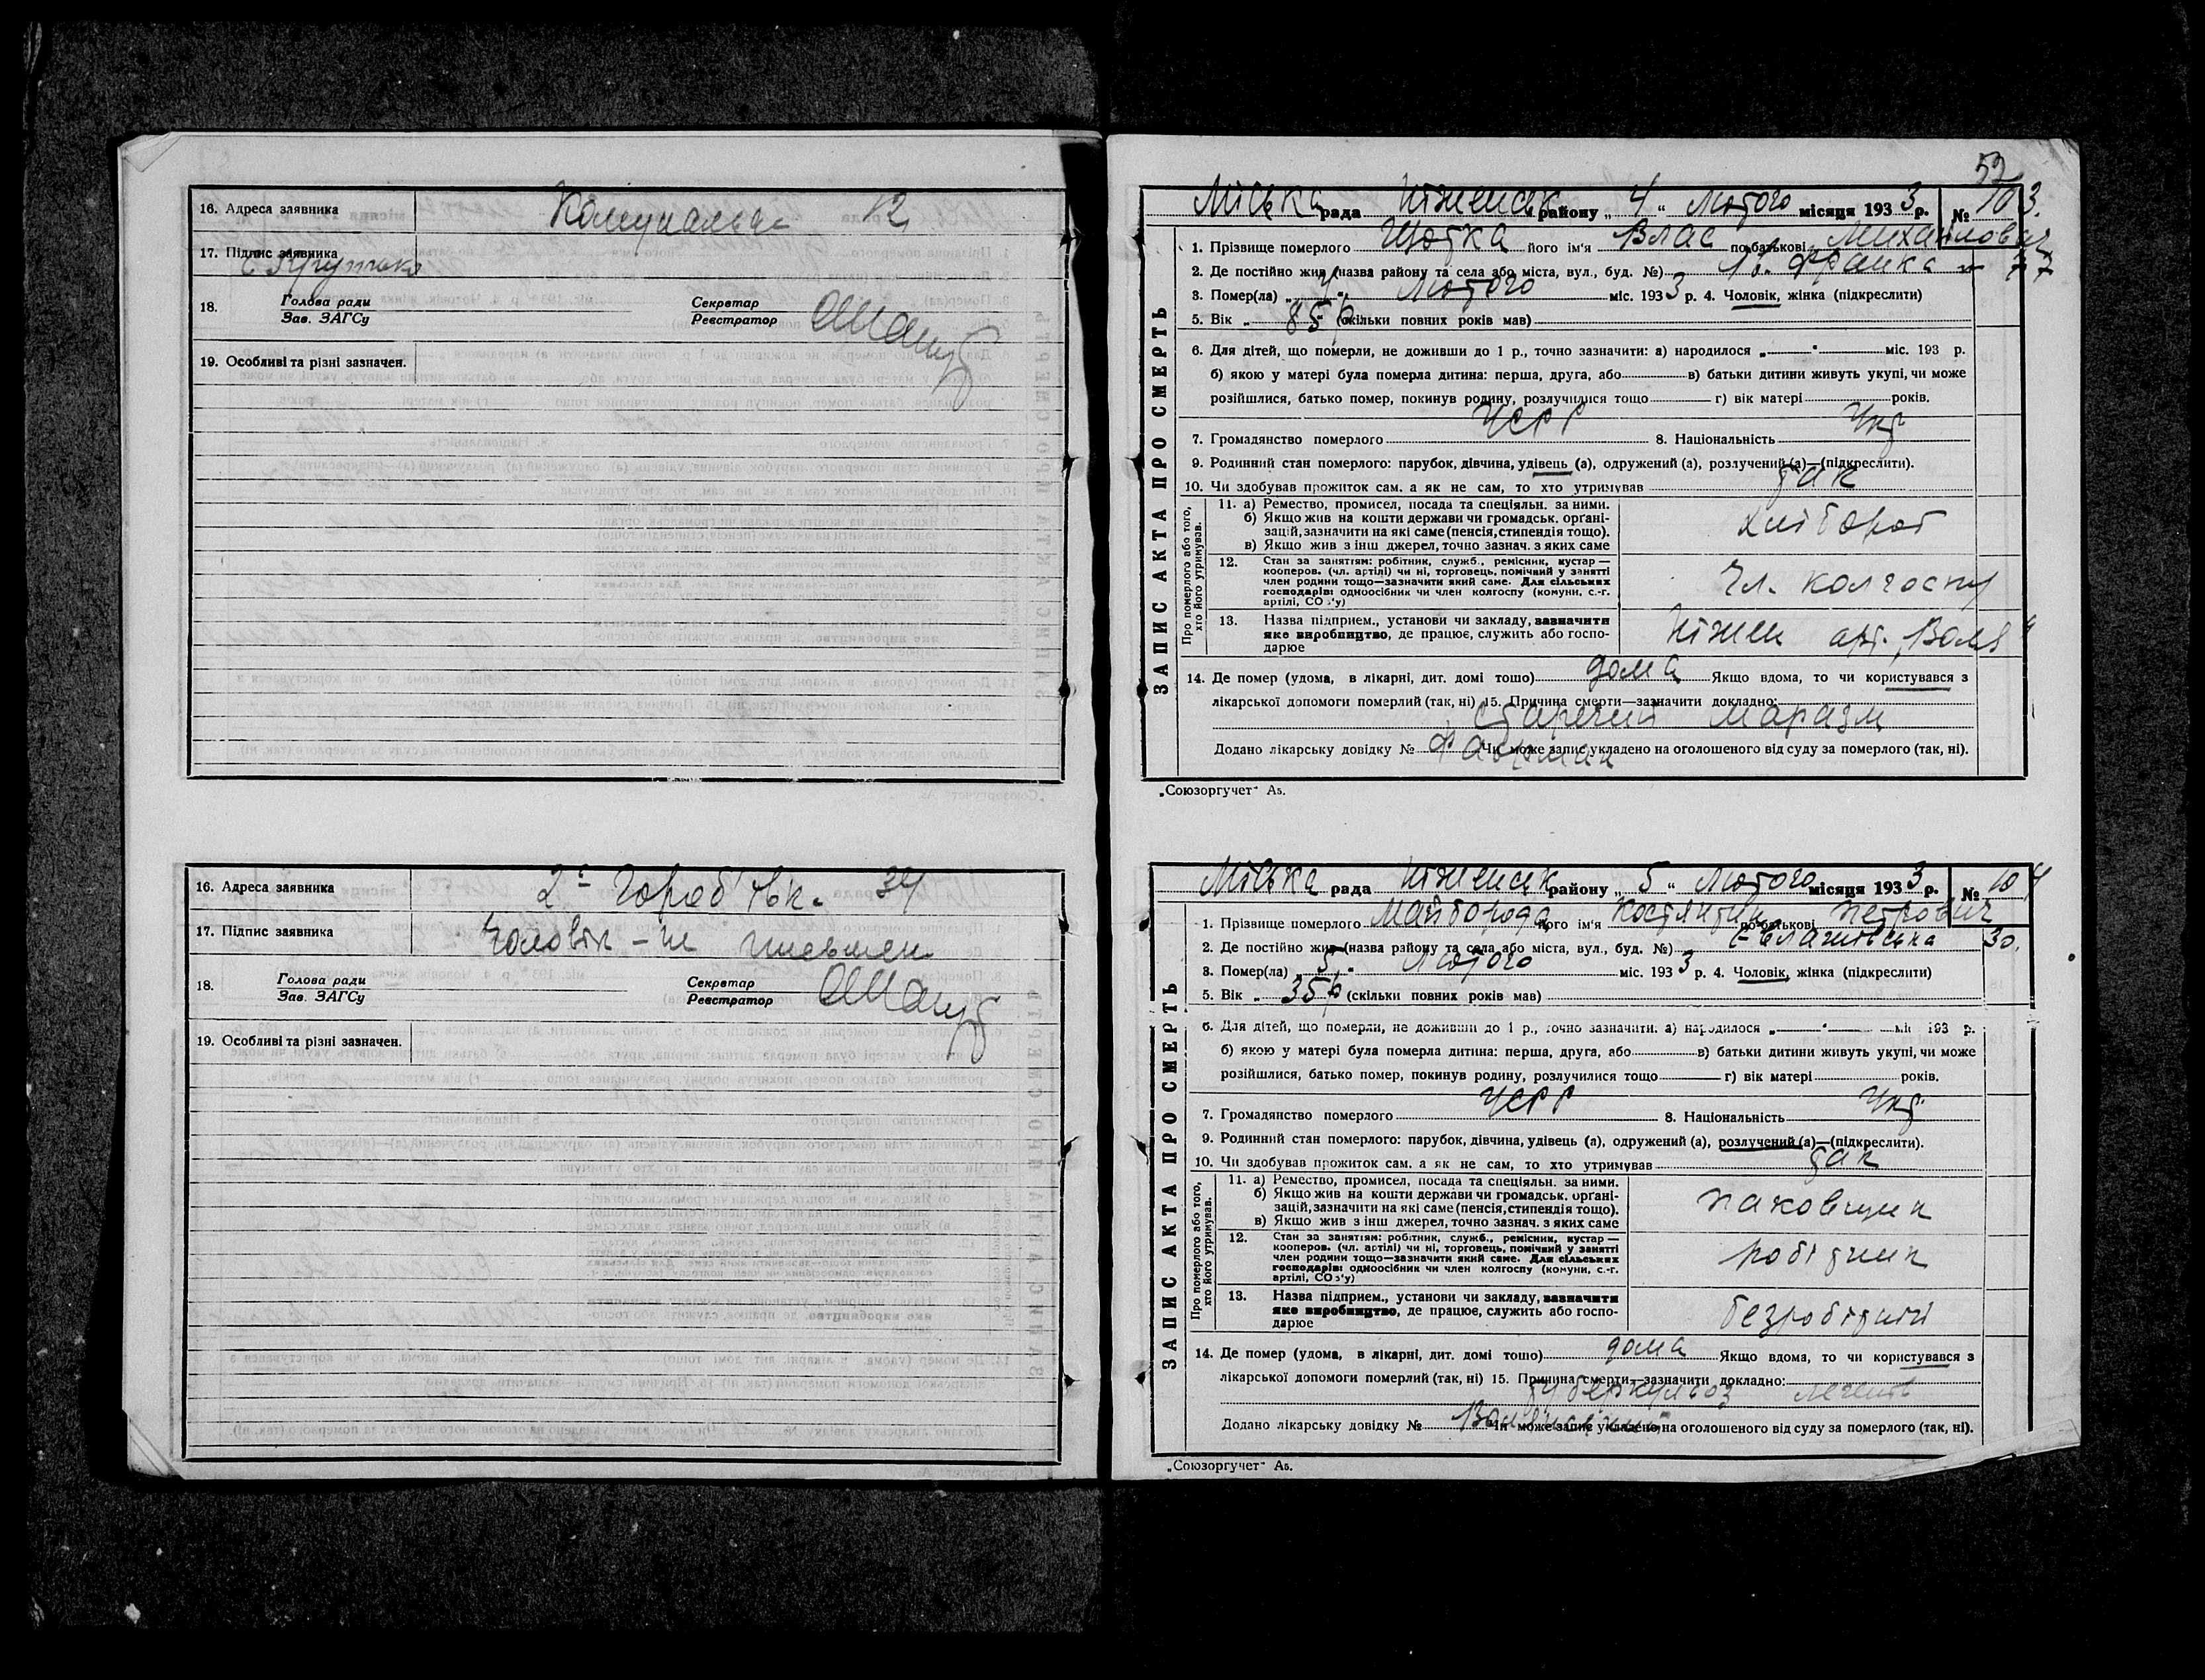 16. Адреса заявника Комунальна 12
17. Підпис заявника
18. Голова ради Секретар
Зав. ЗАГСу Реєстратор
19. Особливі та різні зазначен.
16. Адреса заявника 34
17. Підпис заявника чоловік - не письмен.
18. Голова ради Секретар
Зав. ЗАГСу Реєстратор
19. Особливі та різні зазначен.
52
Міська рада Ніженськ району „ 4 “ Лютого місяця 193 3 р. № 103.
ЗАПИС АКТА ПРО СМЕРТЬ
1. Прізвище померлого Щотка його ім'я Влас по батькові Михайлович
2. Де постійно жив (назва району та села або міста, вул., буд. №) Ів. Франка 77
3. Помер(ла) „ 4 “ Лютого міс. 193 3 р. 4. Чоловік, жінка (підкреслити)
5. Вік „ 85 р (скільки повних років мав)
6. Для дітей, що померли, не доживши до 1 р., точно зазначити: а) народилося „ “ міс. 193 р.
б) якою у матері була померла дитина: перша, друга, або в) батьки дитини живуть укупі, чи може
розійшлися, батько помер, покинув родину, розлучилися тощо г) вік матері років.
7. Громадянство померлого УСРР 8. Національність Укр
9. Родинний стан померлого: парубок, дівчина, удівець (а), одружений (а), розлучений (а)—(підкреслити).
10. Чи здобував прожиток сам, а як не сам, то хто утримував так
Про померлого або того, хто його утримував.
11. а) Ремество, промисел, посада та спеціяльн. за ними.
б) Якщо жив на кошти держави чи громадськ. органі-
зацій, зазначити на які саме (пенсія, стипендія тощо).
в) Якщо жив з інш джерел, точно зазнач. з яких саме
хлібороб
12. Стан за заняттям: робітник, служб., ремісник, кустар—
кооперов. (чл. артілі) чи ні, торговець, помічний у занятті
член родини тощо—зазначити який саме. Для сільських
господарів: одноосібник чи член колгоспу (комуни, с.-г.
артілі, СОЗ'у)
Чл. колгоспу
13. Назва підприєм., установи чи закладу, зазначити
яке виробництво, де працює, служить або госпо-
дарює
Ніжен арт. „Воля“
14. Де помер (удома, в лікарні, дит. домі тощо) дома Якщо вдома, то чи користувався з
лікарської допомоги померлий (так, ні) 15. Причина смерти—зазначити докладно:
Старечий маразм
Додано лікарську довідку № Чи може запис укладено на оголошеного від суду за померлого (так, ні).
„Союзоргучет“ А5.
Міська рада Ніженськ району „ 5 “ Лютого місяця 193 3 р. № 104
ЗАПИС АКТА ПРО СМЕРТЬ
1. Прізвище померлого Майборода його ім'я Костянтин по батькові Петрович
2. Де постійно жив (назва району та села або міста, вул., буд. №) 30.
3. Помер(ла) „ 5 “ Лютого міс. 193 3 р. 4. Чоловік, жінка (підкреслити)
5. Вік „ 35 р (скільки повних років мав)
6. Для дітей, що померли, не доживши до 1 р., точно зазначити: а) народилося „ “ міс. 193 р.
б) якою у матері була померла дитина: перша, друга, або в) батьки дитини живуть укупі, чи може
розійшлися, батько помер, покинув родину, розлучилися тощо г) вік матері років.
7. Громадянство померлого УСРР 8. Національність Укр
9. Родинний стан померлого: парубок, дівчина, удівець (а), одружений (а), розлучений (а)—(підкреслити).
10. Чи здобував прожиток сам, а як не сам, то хто утримував так
Про померлого або того, хто його утримував.
11. а) Ремество, промисел, посада та спеціяльн. за ними.
б) Якщо жив на кошти держави чи громадськ. органі-
зацій, зазначити на які саме (пенсія, стипендія тощо).
в) Якщо жив з інш джерел, точно зазнач. з яких саме
паковщик
12. Стан за заняттям: робітник, служб., ремісник, кустар—
кооперов. (чл. артілі) чи ні, торговець, помічний у занятті
член родини тощо—зазначити який саме. Для сільських
господарів: одноосібник чи член колгоспу (комуни, с.-г.
артілі, СОЗ'у)
робітник
13. Назва підприєм., установи чи закладу, зазначити
яке виробництво, де працює, служить або госпо-
дарює
безробітний
14. Де помер (удома, в лікарні, дит. домі тощо) дома Якщо вдома, то чи користувався з
лікарської допомоги померлий (так, ні) 15. Причина смерти—зазначити докладно:
туберкульоз легенів
Додано лікарську довідку № Чи може запис укладено на оголошеного від суду за померлого (так, ні).
„Союзоргучет“ А5.